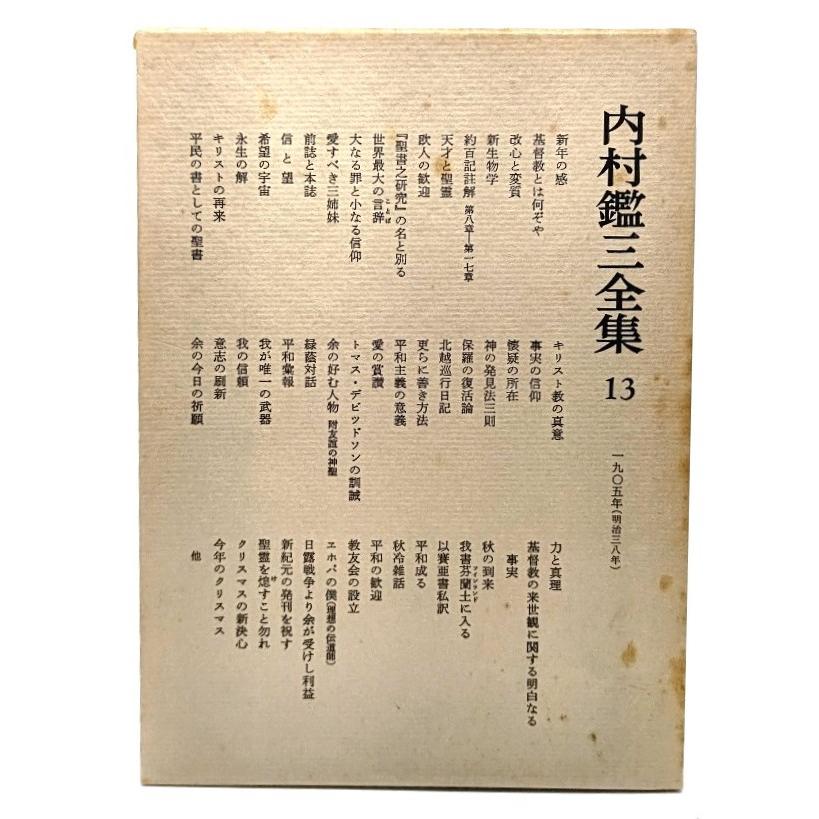 内村鑑三全集 13
一九〇五年(明治三八年)
新年の感
基督教とは何ぞや
改心と変質
新生物学
約百記註解 第八章―第一七章
天才と聖霊
欧人の歓迎
『聖書之研究』の名と別る
世界最大の言辞
ことば
大なる罪と小なる信仰
愛すべき三姉妹
前誌と本誌
信と望
希望の宇宙
永生の解
キリストの再来
平民の書としての聖書
キリスト教の真意
事実の信仰
懐疑の所在
神の発見法三則
保羅の復活論
北越巡行日記
更らに善き方法
平和主義の意義
愛の賞讃
トマス・デビッドソンの訓誡
余の好む人物 附友誼の神聖
緑蔭対話
平和彙報
我が唯一の武器
我の信頼
意志の刷新
余の今日の祈願
力と真理
基督教の来世観に関する明白なる
事実
秋の到来
我書芬蘭土に入る
フィンランド
以賽亜書私訳
平和成る
秋冷雑話
平和の歓迎
教友会の設立
ヱホバの僕(理想の伝道師)
日露戦争より余が受けし利益
新紀元の発刊を祝す
聖霊を熄すこと勿れ
け
クリスマスの新決心
今年のクリスマス
他